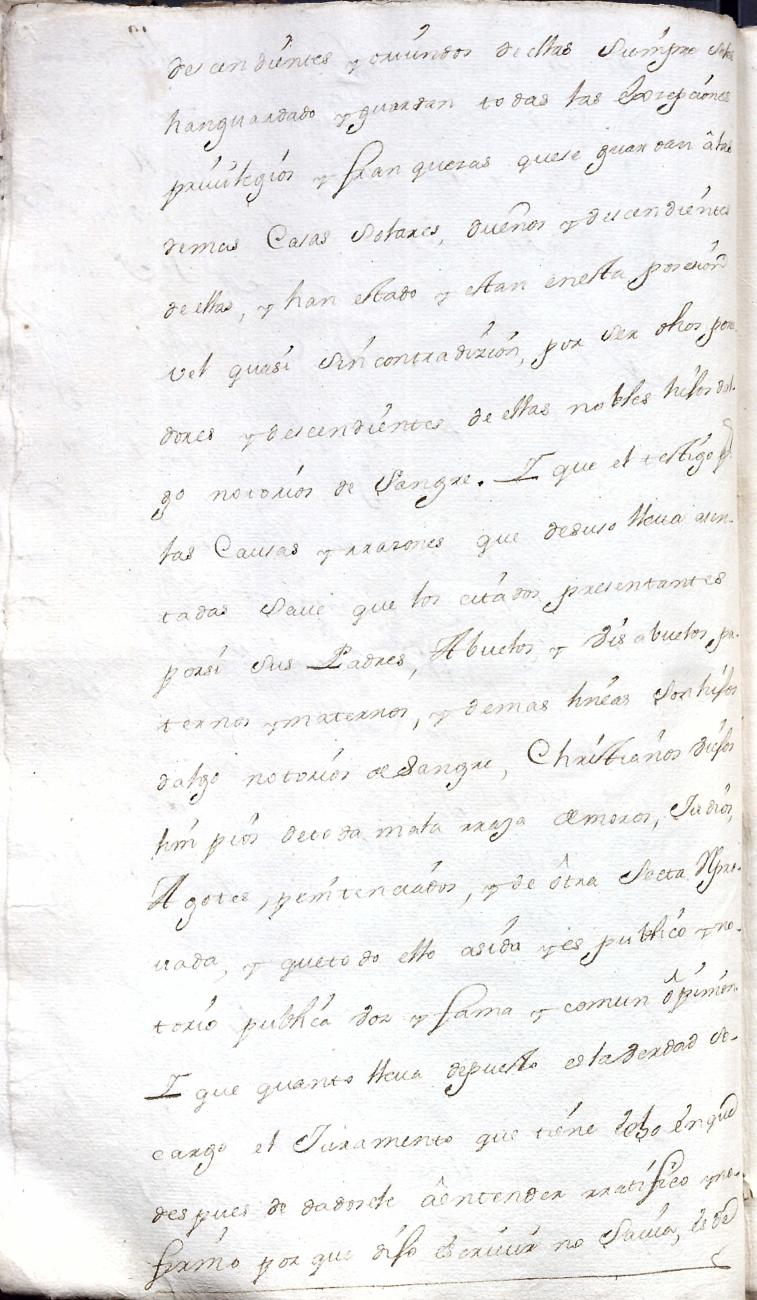 descendientes y oriundos de ellas siempre seles
hanguardado y guardan todas las Exzepciones
privilegios y franquezas quese guardan â las
demas Casas Solares, dueños y descendientes
de ellas, y han estado y estan enesta posesion
vel quasi sin contradizion, por ser dhos posee
dores y descendientes de ellas nobles hijos dal
go notorios de Sangre. I que el testigo p.
las Causas y rrazones que desuso lleva asen-
tadas Save que los citados presentantes
porsi sus Padres, Abuelos y Visabuelos, pa-
ternos y maternos, y demas lineas son hijos
dalgo notorios de Sangre, Christianos viejos
limpios detoda mala rraza de moros, Judios,
Agotes, penitenciados, y de ôtra Secta Repro-
vada, y quetodo ello asida y es publico y no-
torio publica voz y fama y comun ôpinion
I que quanto lleva depuesto es la Verdad so-
cargo el Juramento que tiene êcho en que
despues de dadosele âentender rratifico y no
firmo por que dijo êscrivir no Savia,